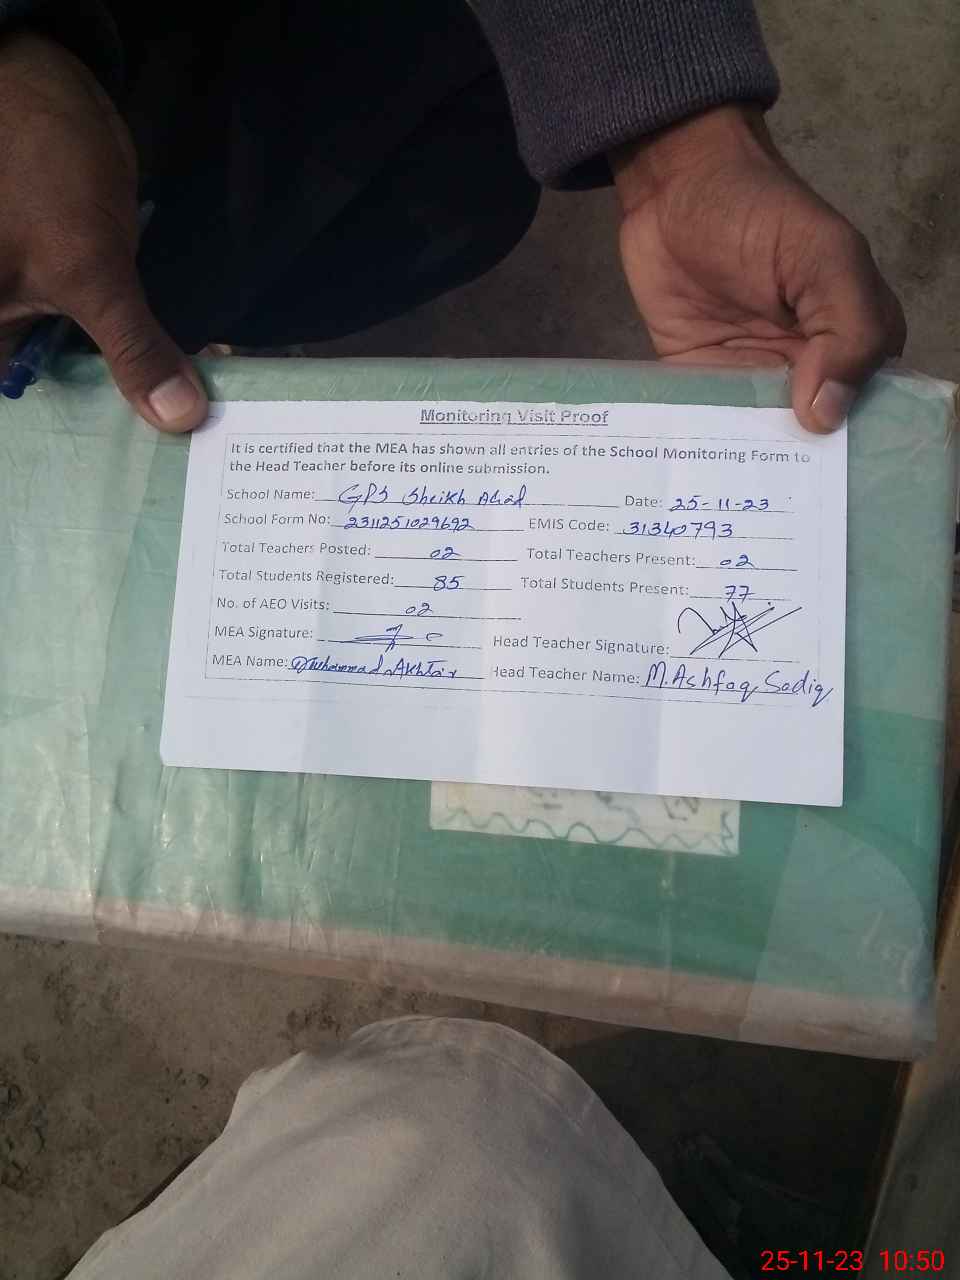 Monitoring Visit Proof
It is certified that the MEA has shown all entries of the School Monitoring Form to
the Head Teacher before its online submission.
School Name: GPS Sheikh Date: 25-11-23
School Form No: 2311251029692 EMIS Code: 31340793
Total Teachers Posted: 02 Total Teachers Present: 02
Total Students Registered: 85 Total Students Present: 77
No. of AEO Visits: 02
MEA Signature: Head Teacher Signature:
MEA Name: Muhammad Akhtar Head Teacher Name: M. Ashfaq Sadiq
25-11-23 10:50